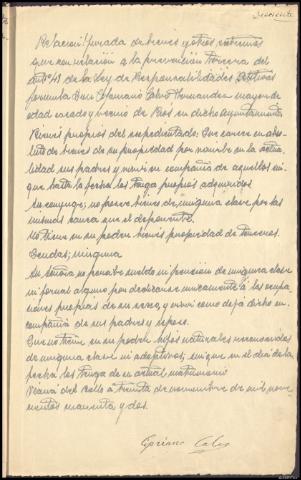 Relacion Jurada de bienes y otros extremos
que con relacion a la prevencion tercera del
art. 49 de la Ley de Responsabilidades Politicas
formula Don Cipriano Calvo Hernandez mayor de
edad casado y vecino de en dicho ayuntamiento
Bienes propios del expedientado: Que carece en abso-
luto de bienes de su propiedad por vivir en la actua-
lidad sus padres y vivir en compañia de aquellos sin
que hasta la fecha los tenga propios adquiridos
Su conyuge; no posee bienes de ninguna clase por las
mismas causa que el deponente.
No tiene en su poder bienes propiedad de terceros.
Deudas; ninguna
Su señora no percibe sueldo ni pension de ninguna clase
ni jornal alguno, por dedicarse unicamente á las ocupa-
ciones propias de su sexo, y vivir como deja dicho en
compañia de sus padres y esposo.
Que no tiene en su poder hijos naturales reconocidos
de ninguna clase ni adoptivos, ni que en el dia de la
fecha los tenga de su actual matrimonio
Viana del Bollo a treinta de noviembre de mil nove-
cientos cuarenta y dos.
Cipriano Calvo